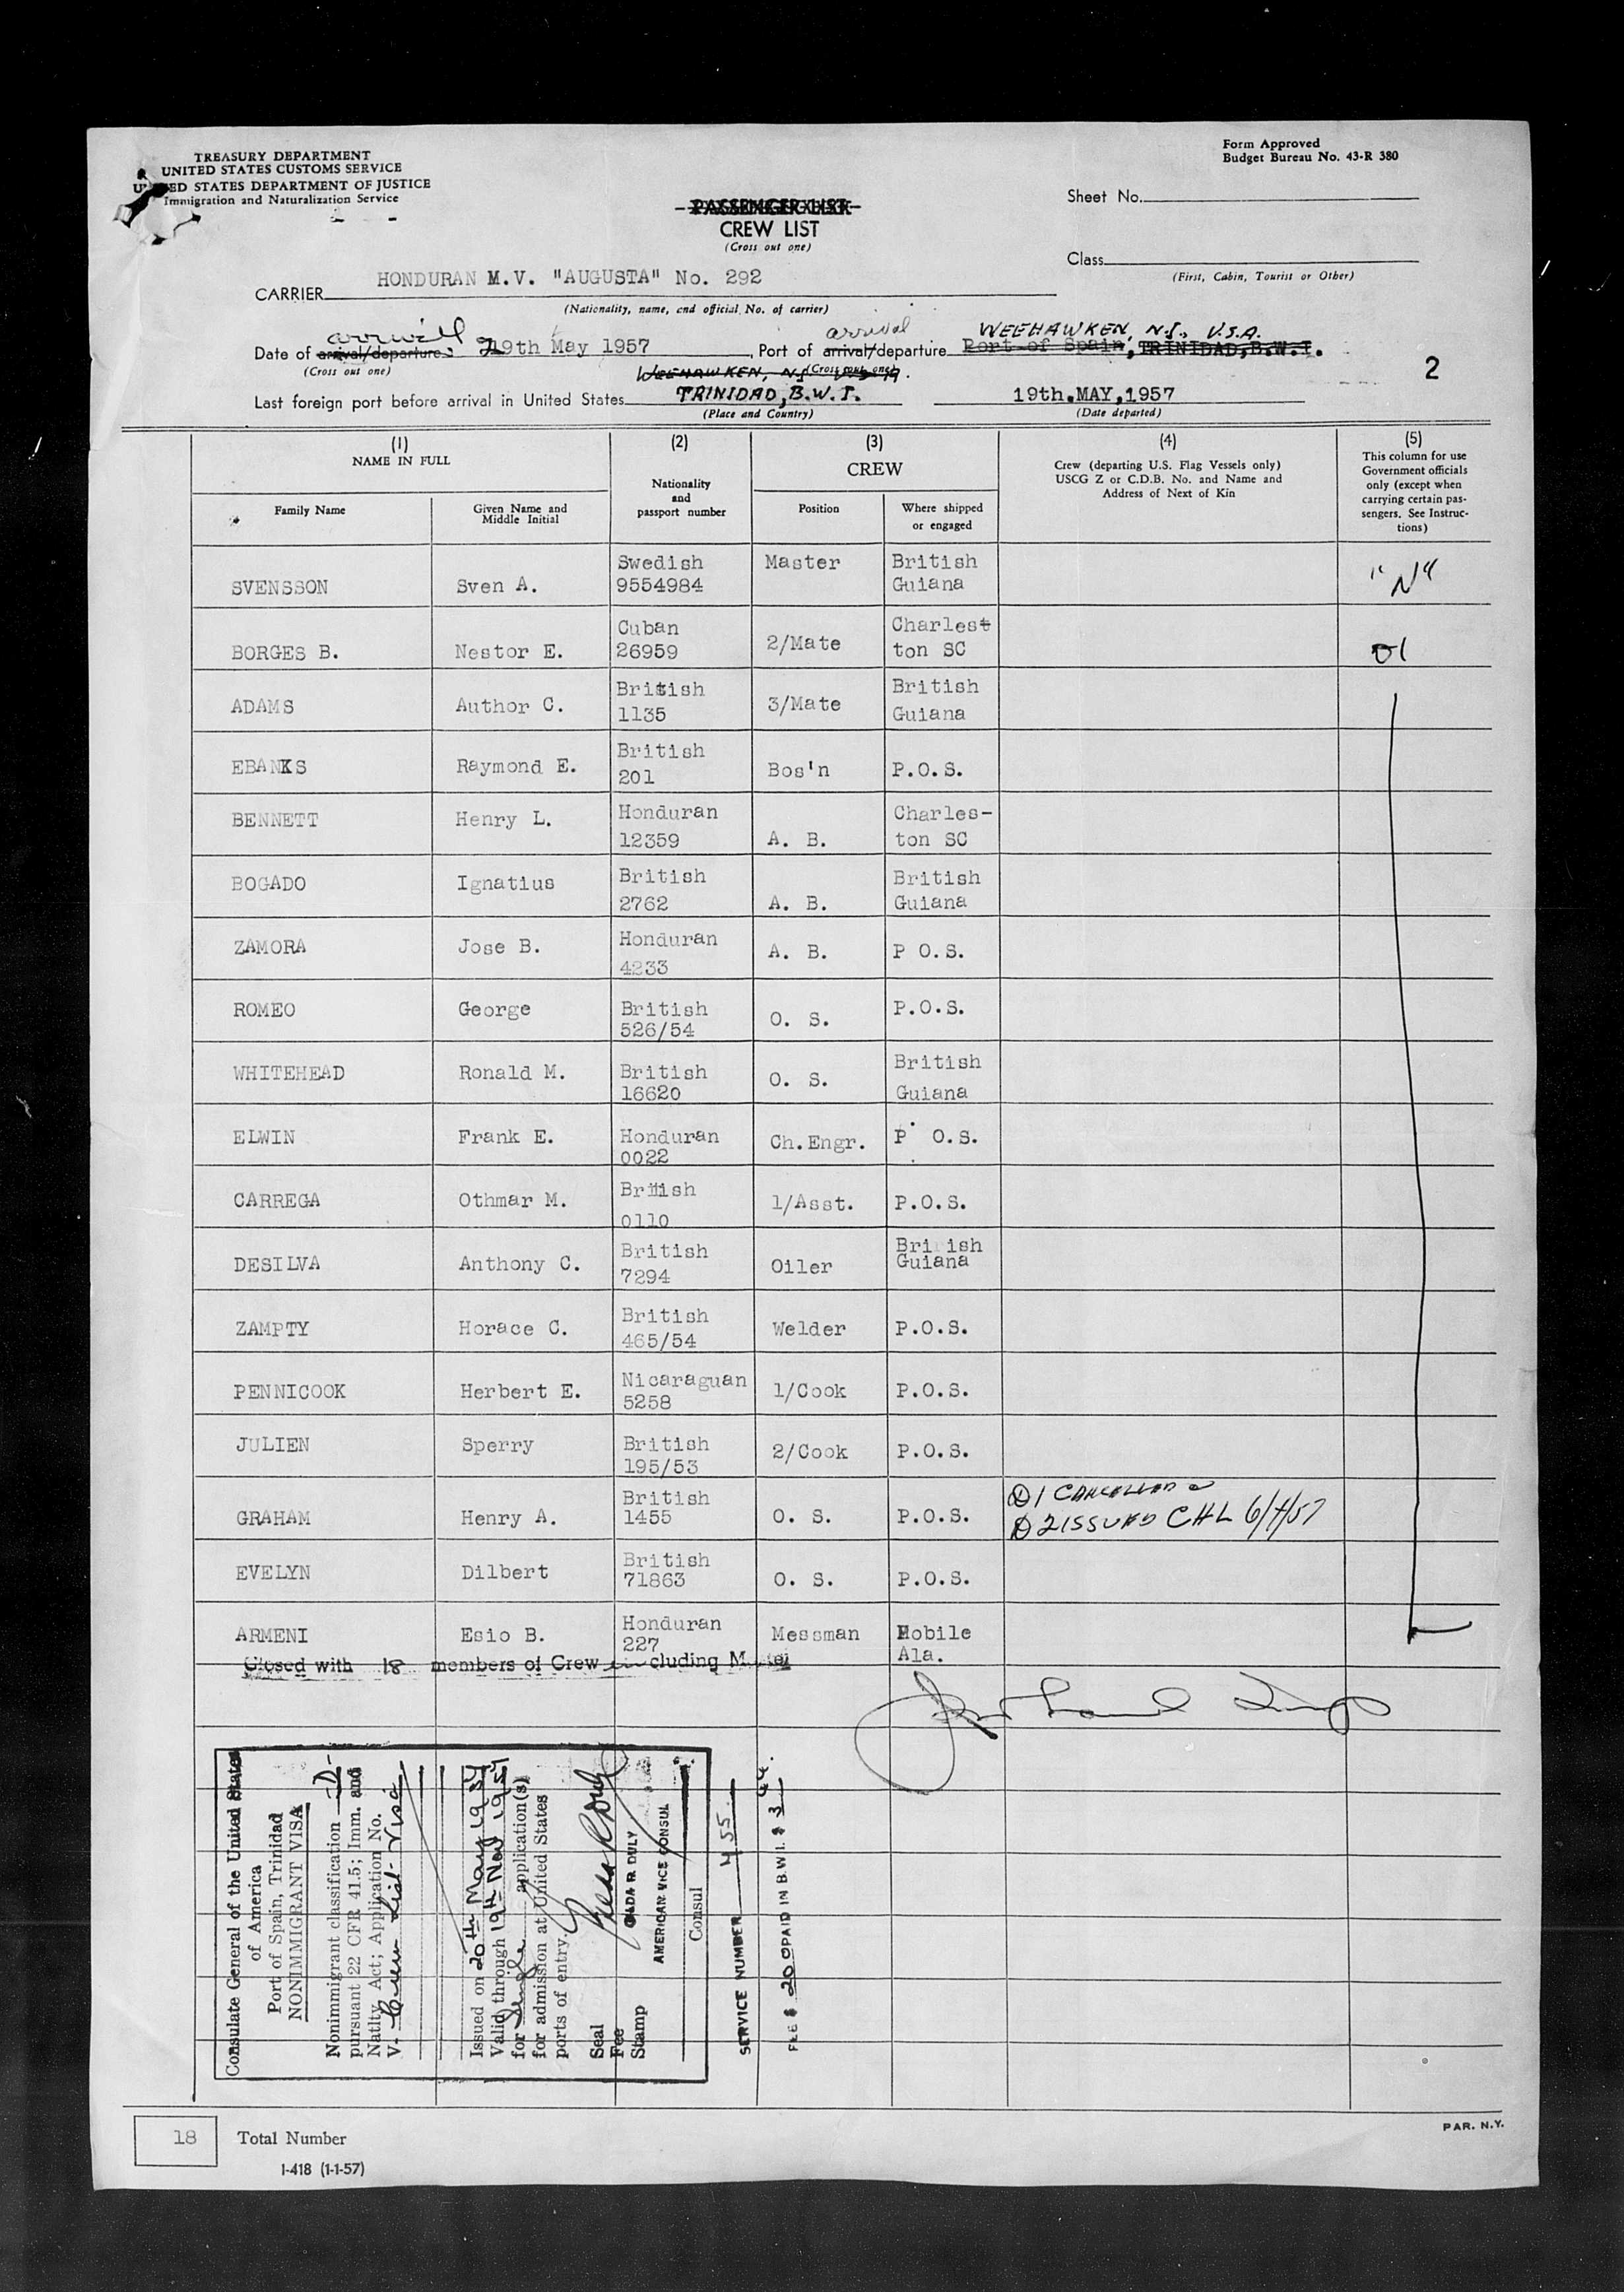 TREASURY DEPARTMENT
UNITED STATES CUSTOMS SERVICE
UNITED STATES DEPARTMENT OF JUSTICE
Immigration and Naturalization Service
Form Approved
Budget Bureau No. 43-R 380
Sheet No.
PASSENGER LIST
CREW LIST
(Cross out one)
Class
(First, Cabin, Tourist or Other)
CARRIER HONDURAN M.V. "AUGUSTA" No. 292
(Nationality, name, and official No. of carrier)
arrival arrival WEEHAWKEN, N.J., U.S.A.
Date of arrival/departure 19th May 1957, Port of arrival/departure Port of Spain, TRINIDAD, B.W.I.
(Cross out one) (Cross out one)
WEEHAWKEN, N.J. U.S.A.
2
Last foreign port before arrival in United States TRINIDAD, B.W.I. 19th.MAY,1957
(Place and Country) (Date departed)
(1) (2) (3) (4) (5)
NAME IN FULL
Family Name
Given Name and Middle Initial
Nationality and passport number
CREW
Position
Where shipped or engaged
Crew (departing U.S. Flag Vessels only)
USCG Z or C.D.B. No. and Name and
Address of Next of Kin
This column for use
Government officials
only (except when
carrying certain pas-
sengers. See Instruc-
tions)
SVENSSON Sven A. Swedish 9554984 Master British Guiana "N"
BORGES B. Nestor E. Cuban 26959 2/Mate Charles ton SC D1
ADAMS Author C. British 1135 3/Mate British Guiana
EBANKS Raymond E. British 201 Bos'n P.O.S.
BENNETT Henry L. Honduran 12359 A. B. Charles- ton SC
BOGADO Ignatius British 2762 A. B. British Guiana
ZAMORA Jose B. Honduran 4233 A. B. P O.S.
ROMEO George British 526/54 O. S. P.O.S.
WHITEHEAD Ronald M. British 16620 O. S. British Guiana
ELWIN Frank E. Honduran 0022 Ch.Engr. P O.S.
CARREGA Othmar M. British 0110 1/Asst. P.O.S.
DESILVA Anthony C. British 7294 Oiler British Guiana
ZAMPTY Horace C. British 465/54 Welder P.O.S.
PENNICOOK Herbert E. Nicaraguan 5258 1/Cook P.O.S.
JULIEN Sperry British 195/53 2/Cook P.O.S.
GRAHAM Henry A. British 1455 O. S. P.O.S. D1 CANCELLED D2 ISSUED CHL 6/4/57
EVELYN Dilbert British 71863 O. S. P.O.S.
ARMENI Esio B. Honduran 227 Messman Mobile Ala.
Closed with 18 members of Crew including Master
Consulate General of the United States
of America
Port of Spain, Trinidad
NONIMMIGRANT VISA
Nonimmigrant classification D
pursuant 22 CFR 41.5; Imm. and
Natlty. Act; Application No.
V- Crew List Visa
Issued on 20th May 1957
Valid through 19th Nov 1957
for Single application(s)
for admission at United States
ports of entry.
DULY
AMERICAN VICE CONSUL
Consul
Seal
Fee
Stamp
SERVICE NUMBER 455
FEE $ 2.00 PAID IN B.W.I. $ 3.44.
18 Total Number
I-418 (1-1-57)
PAR. N.Y.